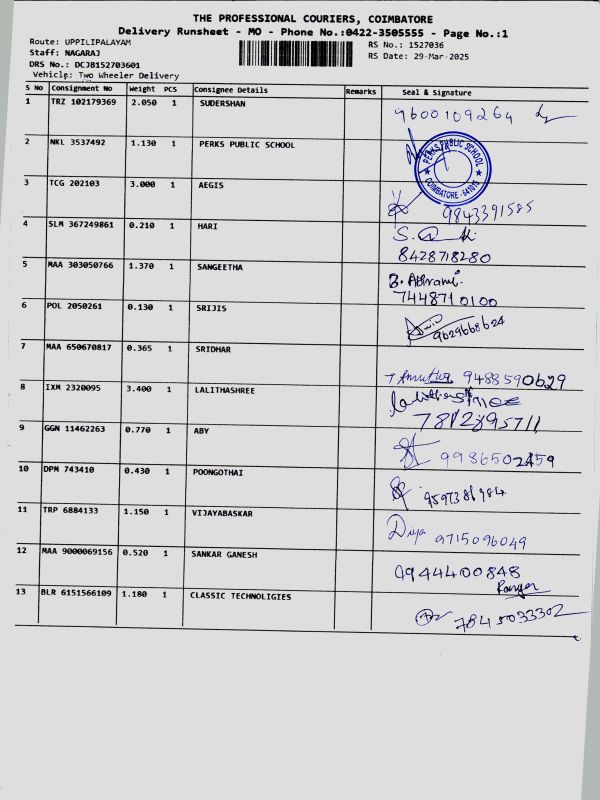 THE PROFESSIONAL COURIERS, COIMBATORE
Delivery Runsheet - MO - Phone No.:0422-3505555 - Page No.:1
Route: UPPILIPALAYAM RS No.: 1527036
Staff: NAGARAJ RS Date: 29-Mar-2025
DRS No.: DCJB152703601
Vehicle: Two Wheeler Delivery
S No Consignment No Weight PCS Consignee Details Remarks Seal & Signature
1 TRZ 102179369 2.050 1 SUDERSHAN 9600109264
2 NKL 3537492 1.130 1 PERKS PUBLIC SCHOOL PERKS PUBLIC SCHOOL COIMBATORE - 641015
3 TCG 202103 3.000 1 AEGIS 9843391585
4 SLM 367249861 0.210 1 HARI
8428718280
5 MAA 303050766 1.370 1 SANGEETHA
7448710100
6 POL 2050261 0.130 1 SRIJIS 9629668624
7 MAA 650670817 0.365 1 SRIDHAR
9488590629
8 IXM 2320095 3.400 1 LALITHASHREE
7812895711
9 GGN 11462263 0.770 1 ABY 9986502459
10 DPM 743410 0.430 1 POONGOTHAI 9597386984
11 TRP 6884133 1.150 1 VIJAYABASKAR Diya 9715096049
12 MAA 9000069156 0.520 1 SANKAR GANESH 9944400848
13 BLR 6151566109 1.180 1 CLASSIC TECHNOLIGIES 7845033302